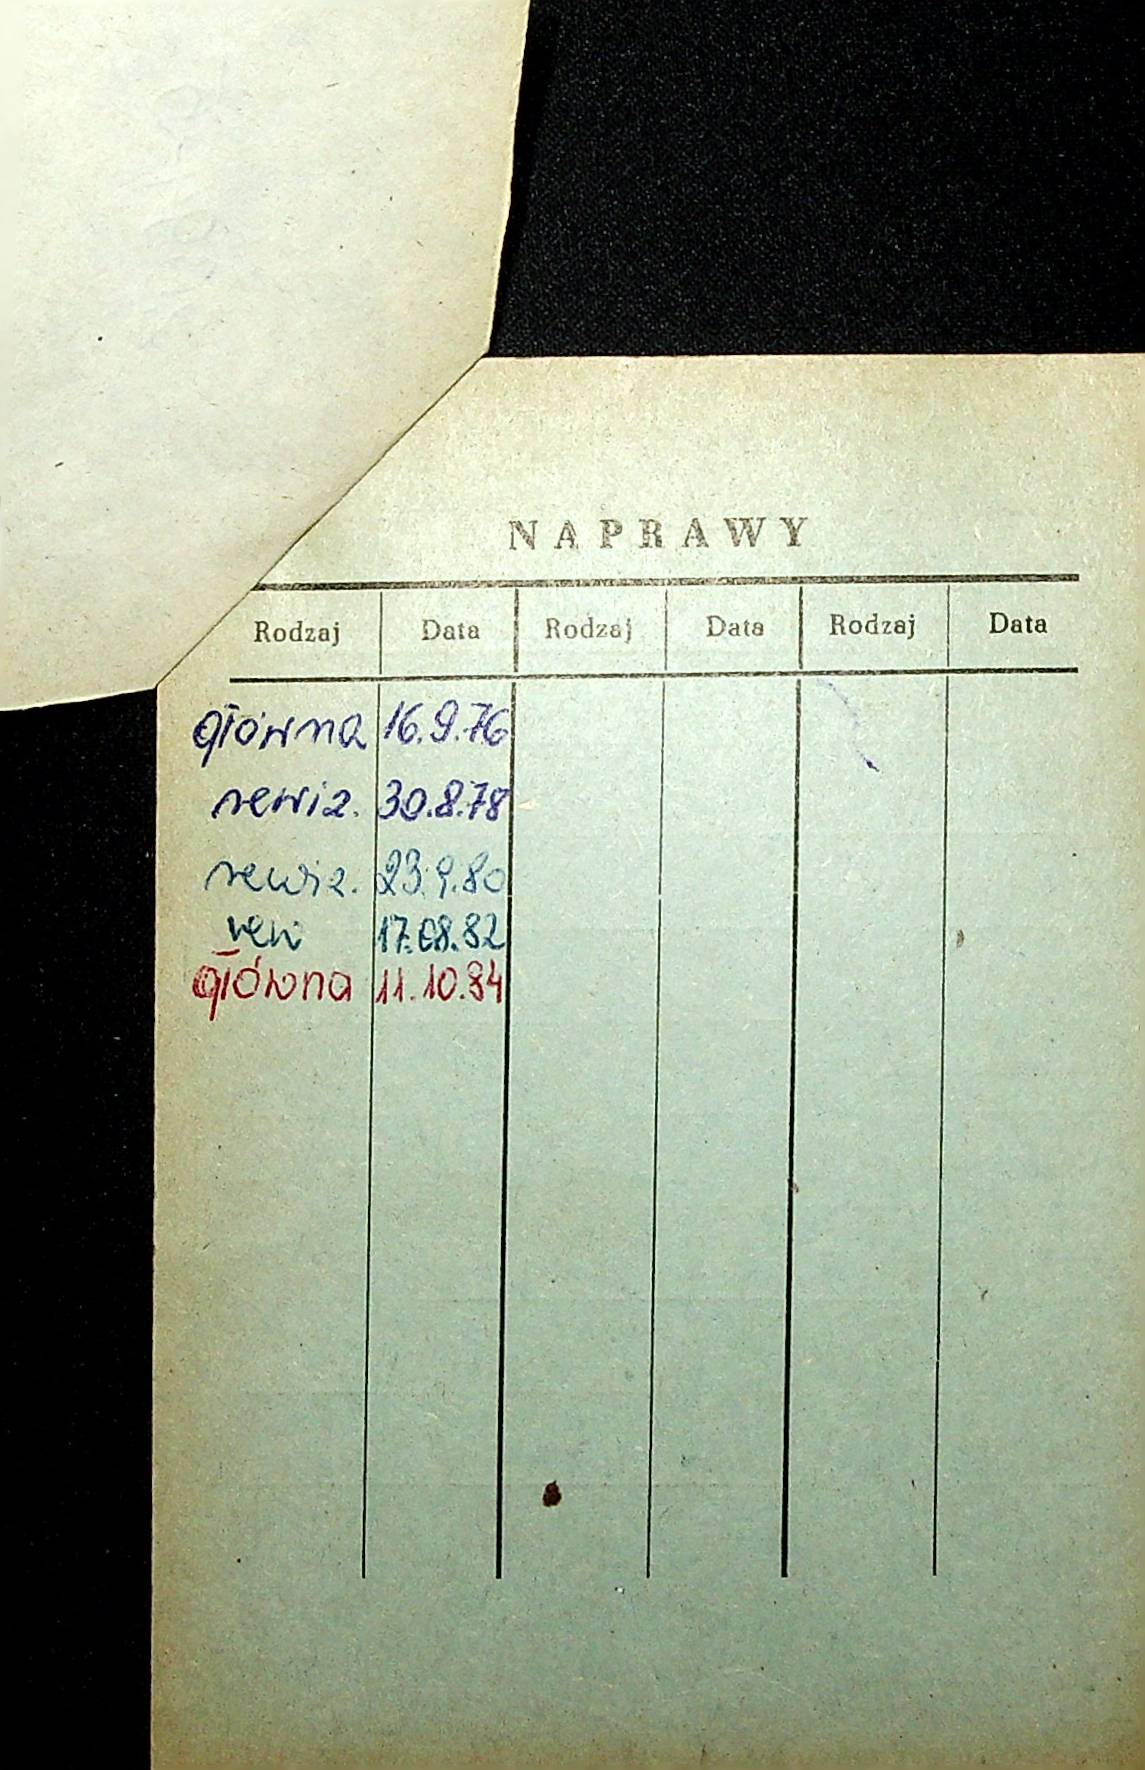 NAPRAWY
Rodzaj Data Rodzaj Data Rodzaj Data
główna 16.9.76
rewiz. 30.8.78
rewiz. 23.9.80
rew 17.08.82
główna 11.10.84